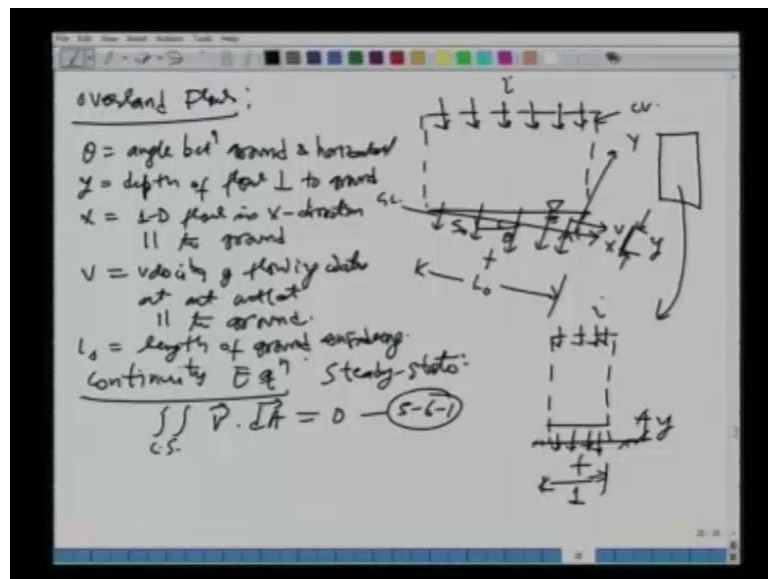 overland Flow:
θ = angle betⁿ ground & horizontal
y = depth of flow ⊥ to ground
x = 1-D flow in x-direction
|| to ground
V = velocity of flowing water
at outlet
|| to ground.
L₀ = length of ground surface
Continuity Eqⁿ Steady-state:
∫∫ V⃗ . dA⃗ = 0 — 5-6-1
c.s.
i
c.v.
Y
G.L.
S₀
θ
V
x
y
f
L₀
i
y
f
1